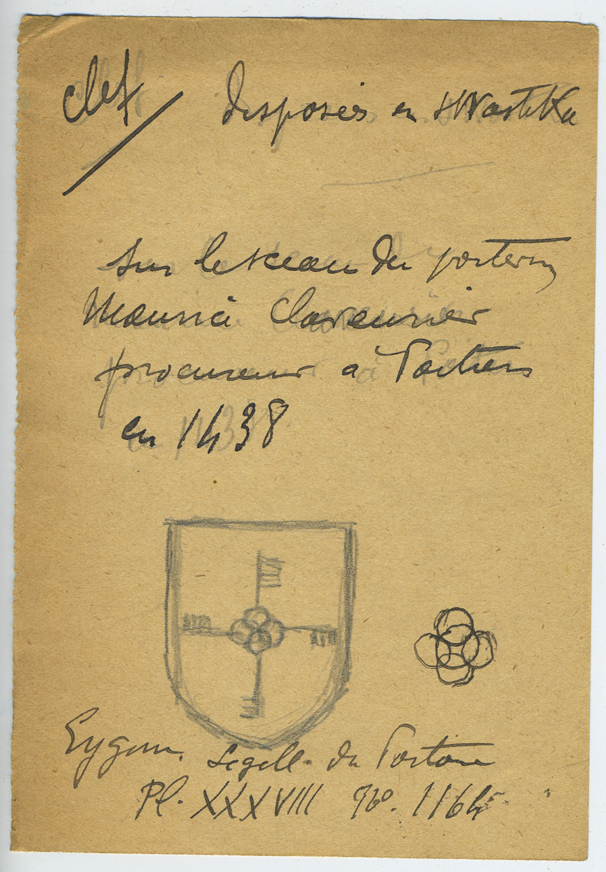 clef disposées en swastika
sur le sceau du poitevin
Maurice Claveurier
procureur à Poitiers
en 1438
Eygun. Sigill. du Poitou
Pl. XXXVIII No. 1164